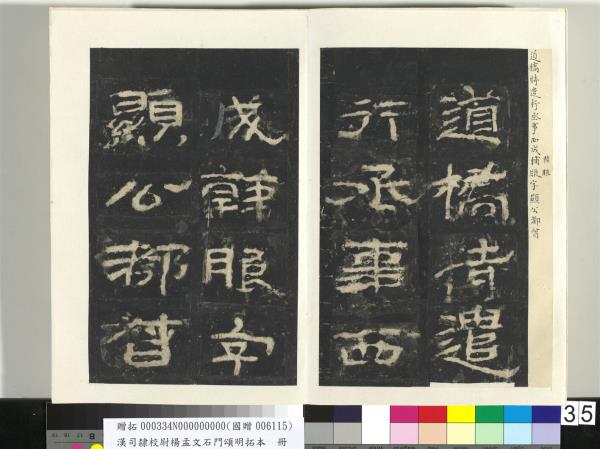 道橋特遣行丞事西成
字顯公
道橋特遣
行丞事西
成韓朖字
顯公都督
贈拓 000334N000000000(國贈 006115)
漢司隸校尉楊孟文石門頌明拓本 冊
35
8